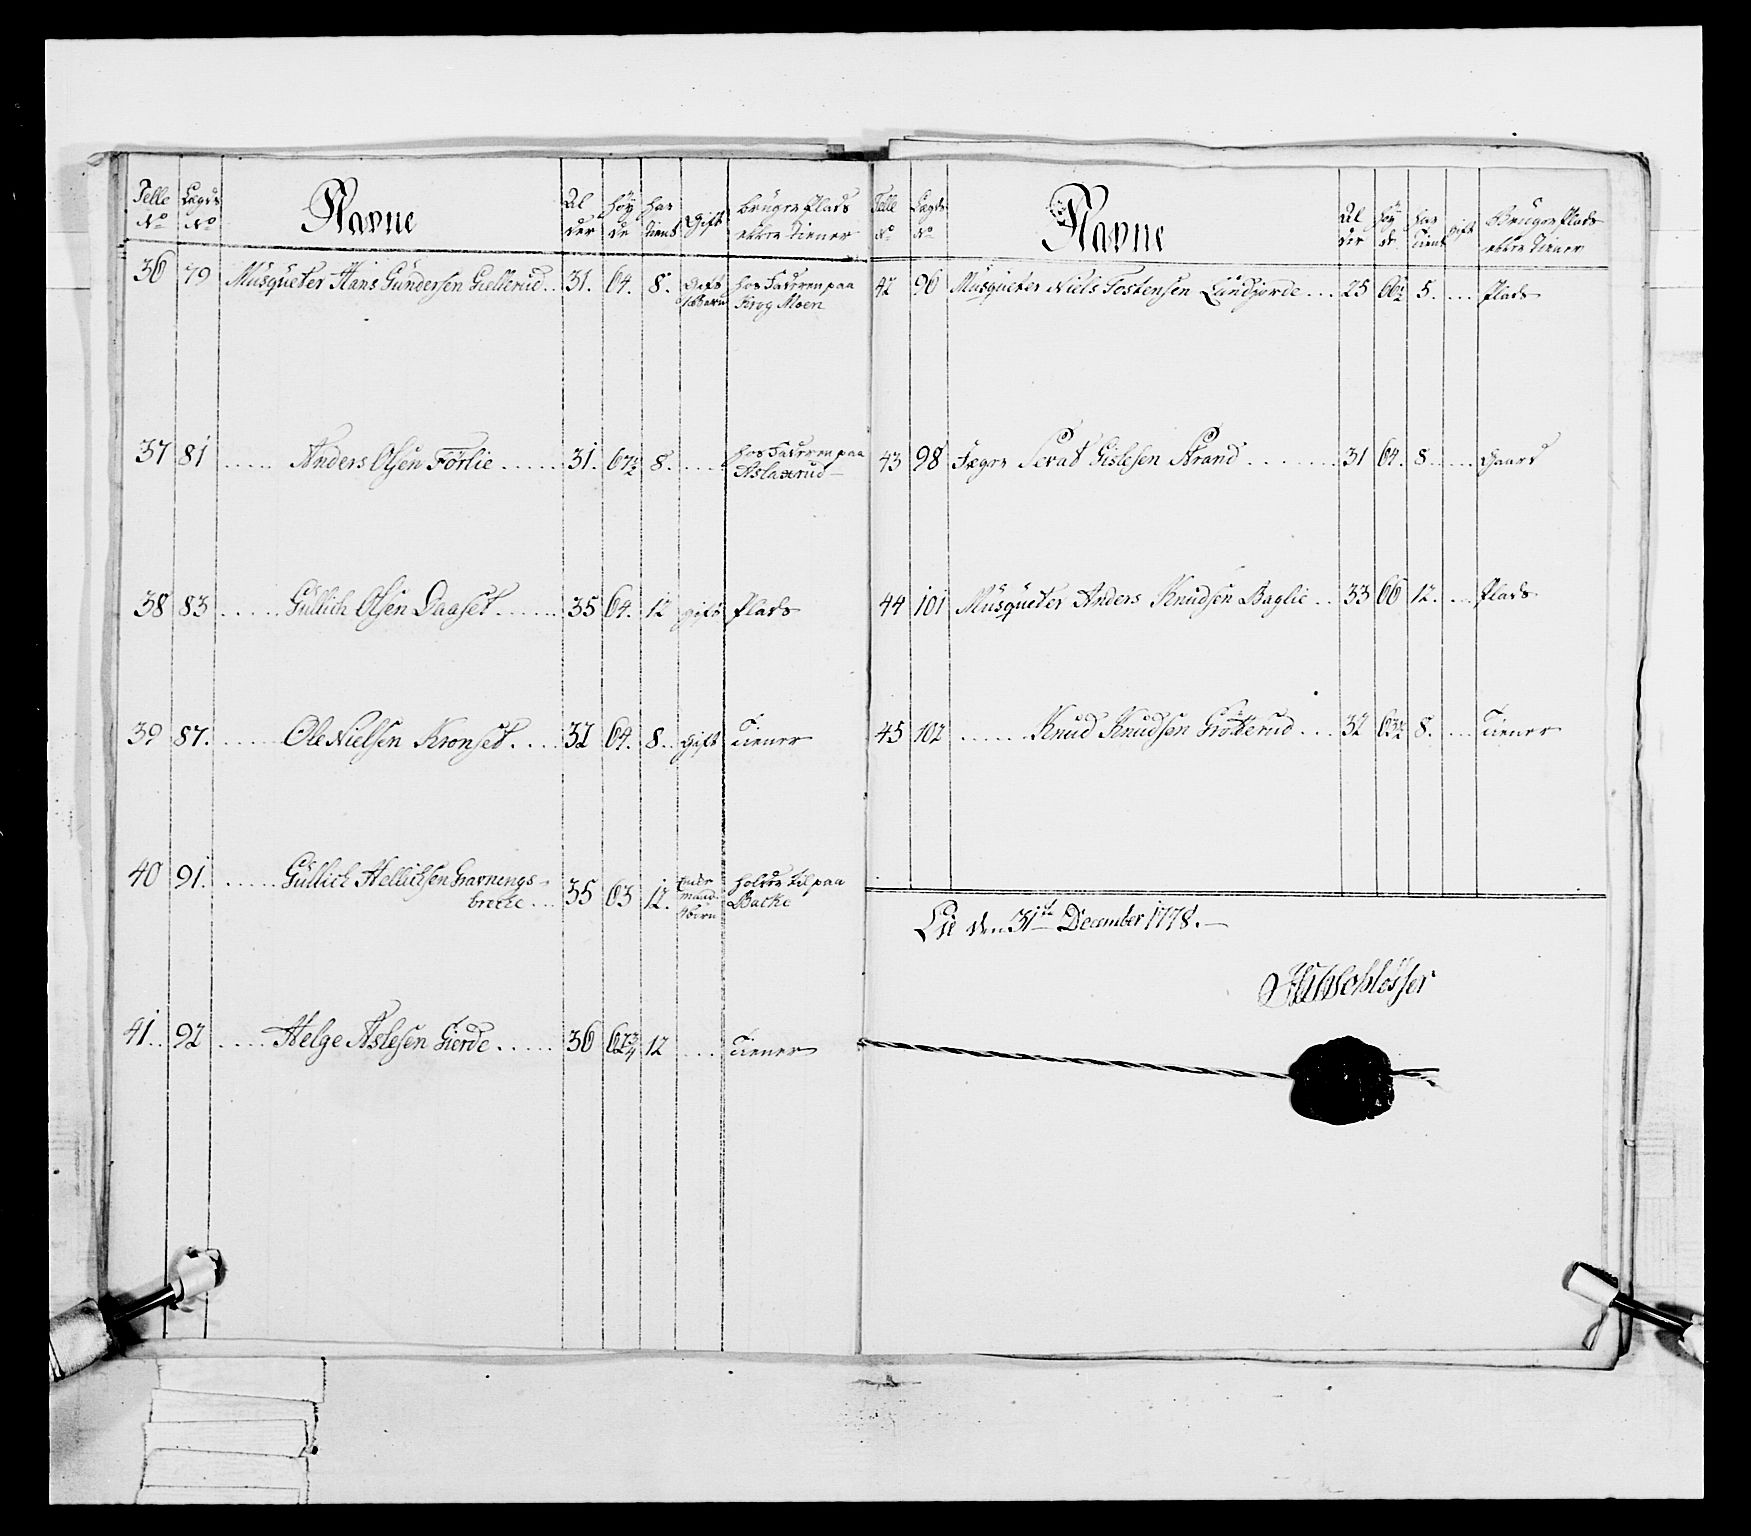 Telle No Lægds No Navne Al der Höy de Har tient Gift bruger Plads eller tiener
36 79 Musqueter Hans Gundersen Gellerud .. 31. 64. 8. Gift 1 Barn hos Faderen paa Krog Moen
37 81 ..... Anders Olsen Förlie ...... 31. 67½ 8. .... hos Faderen paa Aslaxrud
38 83 ..... Gullich Olsen Daaset ...... 35 64. 12 gift Plads
39 87. ..... Ole Nielsen Kronset. ... 32 64. 8.. gift tiener
40 91. ..... Gullich Hellichsen Gravnings-
brecke ... 35 63 12. Enke mand 4 börn holder til paa Backe
41.. 92 ..... Helge Aslesen Gierde ..... 36 62¾ 12 ... tiener
Telle No Lægds No Navne Al der Höy de har tient gift Bruger Plads eller tiener
42 96 Musqueter Niels Tostensen Lundjorde ... 25 66½ 5. ... Plads
43 98 Jæger Sevat Gislesen Strand ....... 31 64. 8 .. .... Gaard
44 101 Musqueter Anders Knudsen Baglie .. 33 66 12. ... Plads
45 102 ...... Knud Knudsen Grötterud ... 32 63½ 8. ... tiener
Lie den 31te December 1778. —
Schlösser